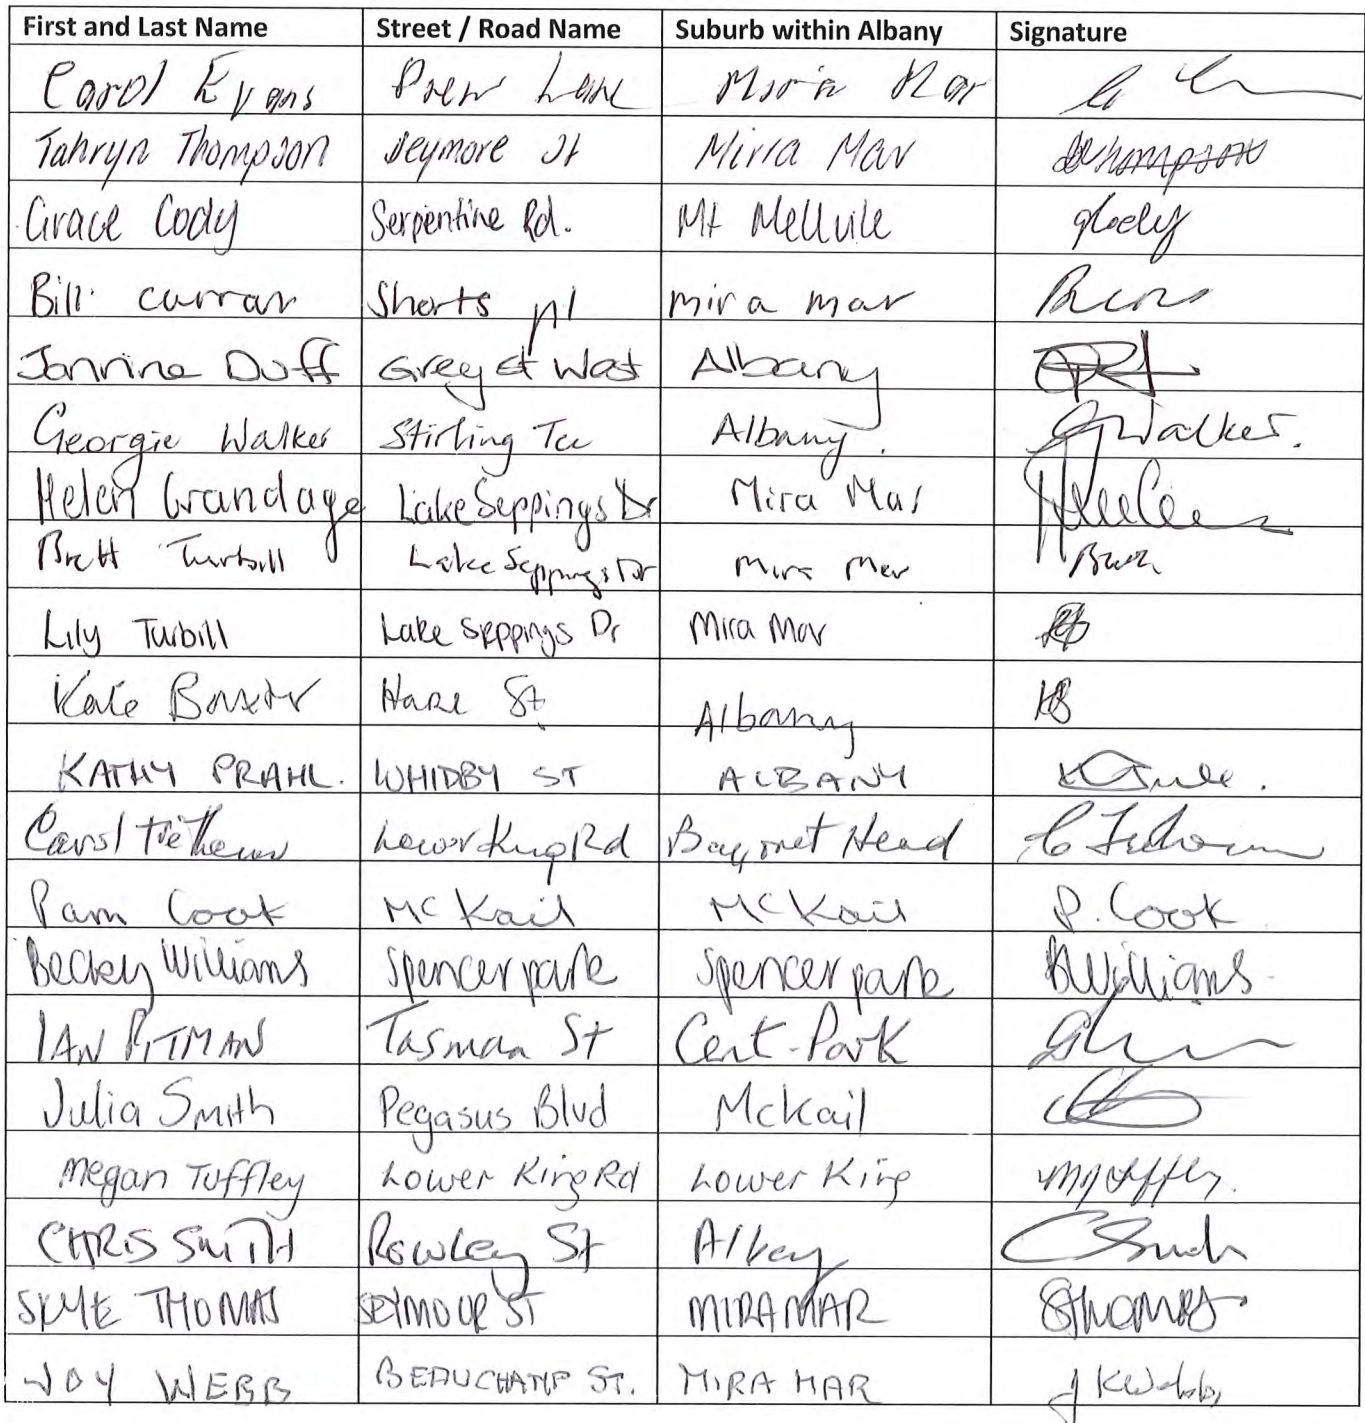 First and Last Name Street / Road Name Suburb within Albany Signature
Carol Evans Drew Lane Mira Mar
Tahryn Thompson Seymore St Mirra Mar Thompson
Grace Cody Serpentine Rd. Mt Mellvile
Bill curran Shorts pl mira mar
Jannine Duff Grey st West Albany
Georgie Walker Stirling Tce Albany. GWalker.
Helen Grandage Lake Seppings Dr Mira Mar
Brett Turbill Lake Seppings Dr Mira Mar
Lily Turbill Lake Seppings Dr Mira Mar
Kate Baxter Hare St Albany KB
KATHY PRAHL. WHIDBY ST ALBANY
Carol Trethewn Lower King Rd Bayonet Head
Pam Cook McKail McKail P. Cook
Becky Williams Spencer park Spencer park BWilliams
IAN PITMAN Tasman St Cent-Park
Julia Smith Pegasus Blvd McKail
Megan Tuffley Lower King Rd Lower King
CHRIS SMITH Rowley St Albany CSmith
SKYE THOMAS SEYMOUR ST MIRAMAR SThomas
JOY WEBB BEAUCHAMP ST. MIRA MAR J KWebb